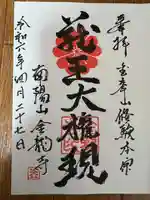 奉拝
金峯山修験本宗
蔵王大権現
南陽山 金龍寺
令和六年四月二十七日